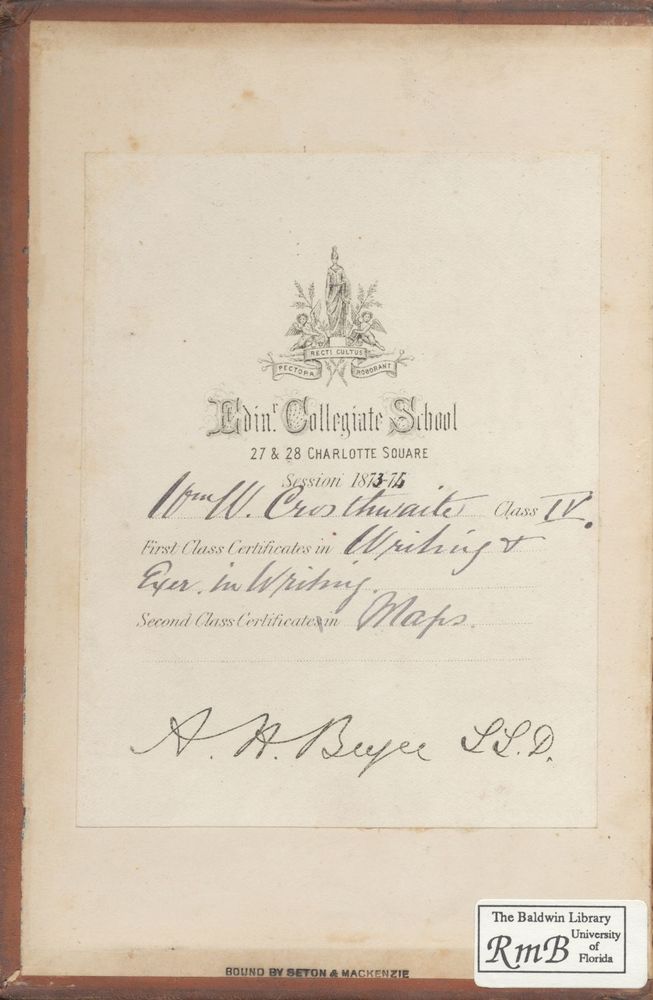 RECTI CULTUS
PECTORA ROBORANT
Edinr. Collegiate School
27 & 28 CHARLOTTE SQUARE
Session 1873-74
Wm W. Crosthwaite Class IV.
First Class Certificates in Writing &
Exer. in Writing.
Second Class Certificates in Maps.
A. H. Bryce LL.D.
BOUND BY SETON & MACKENZIE
The Baldwin Library
RmB University
of
Florida